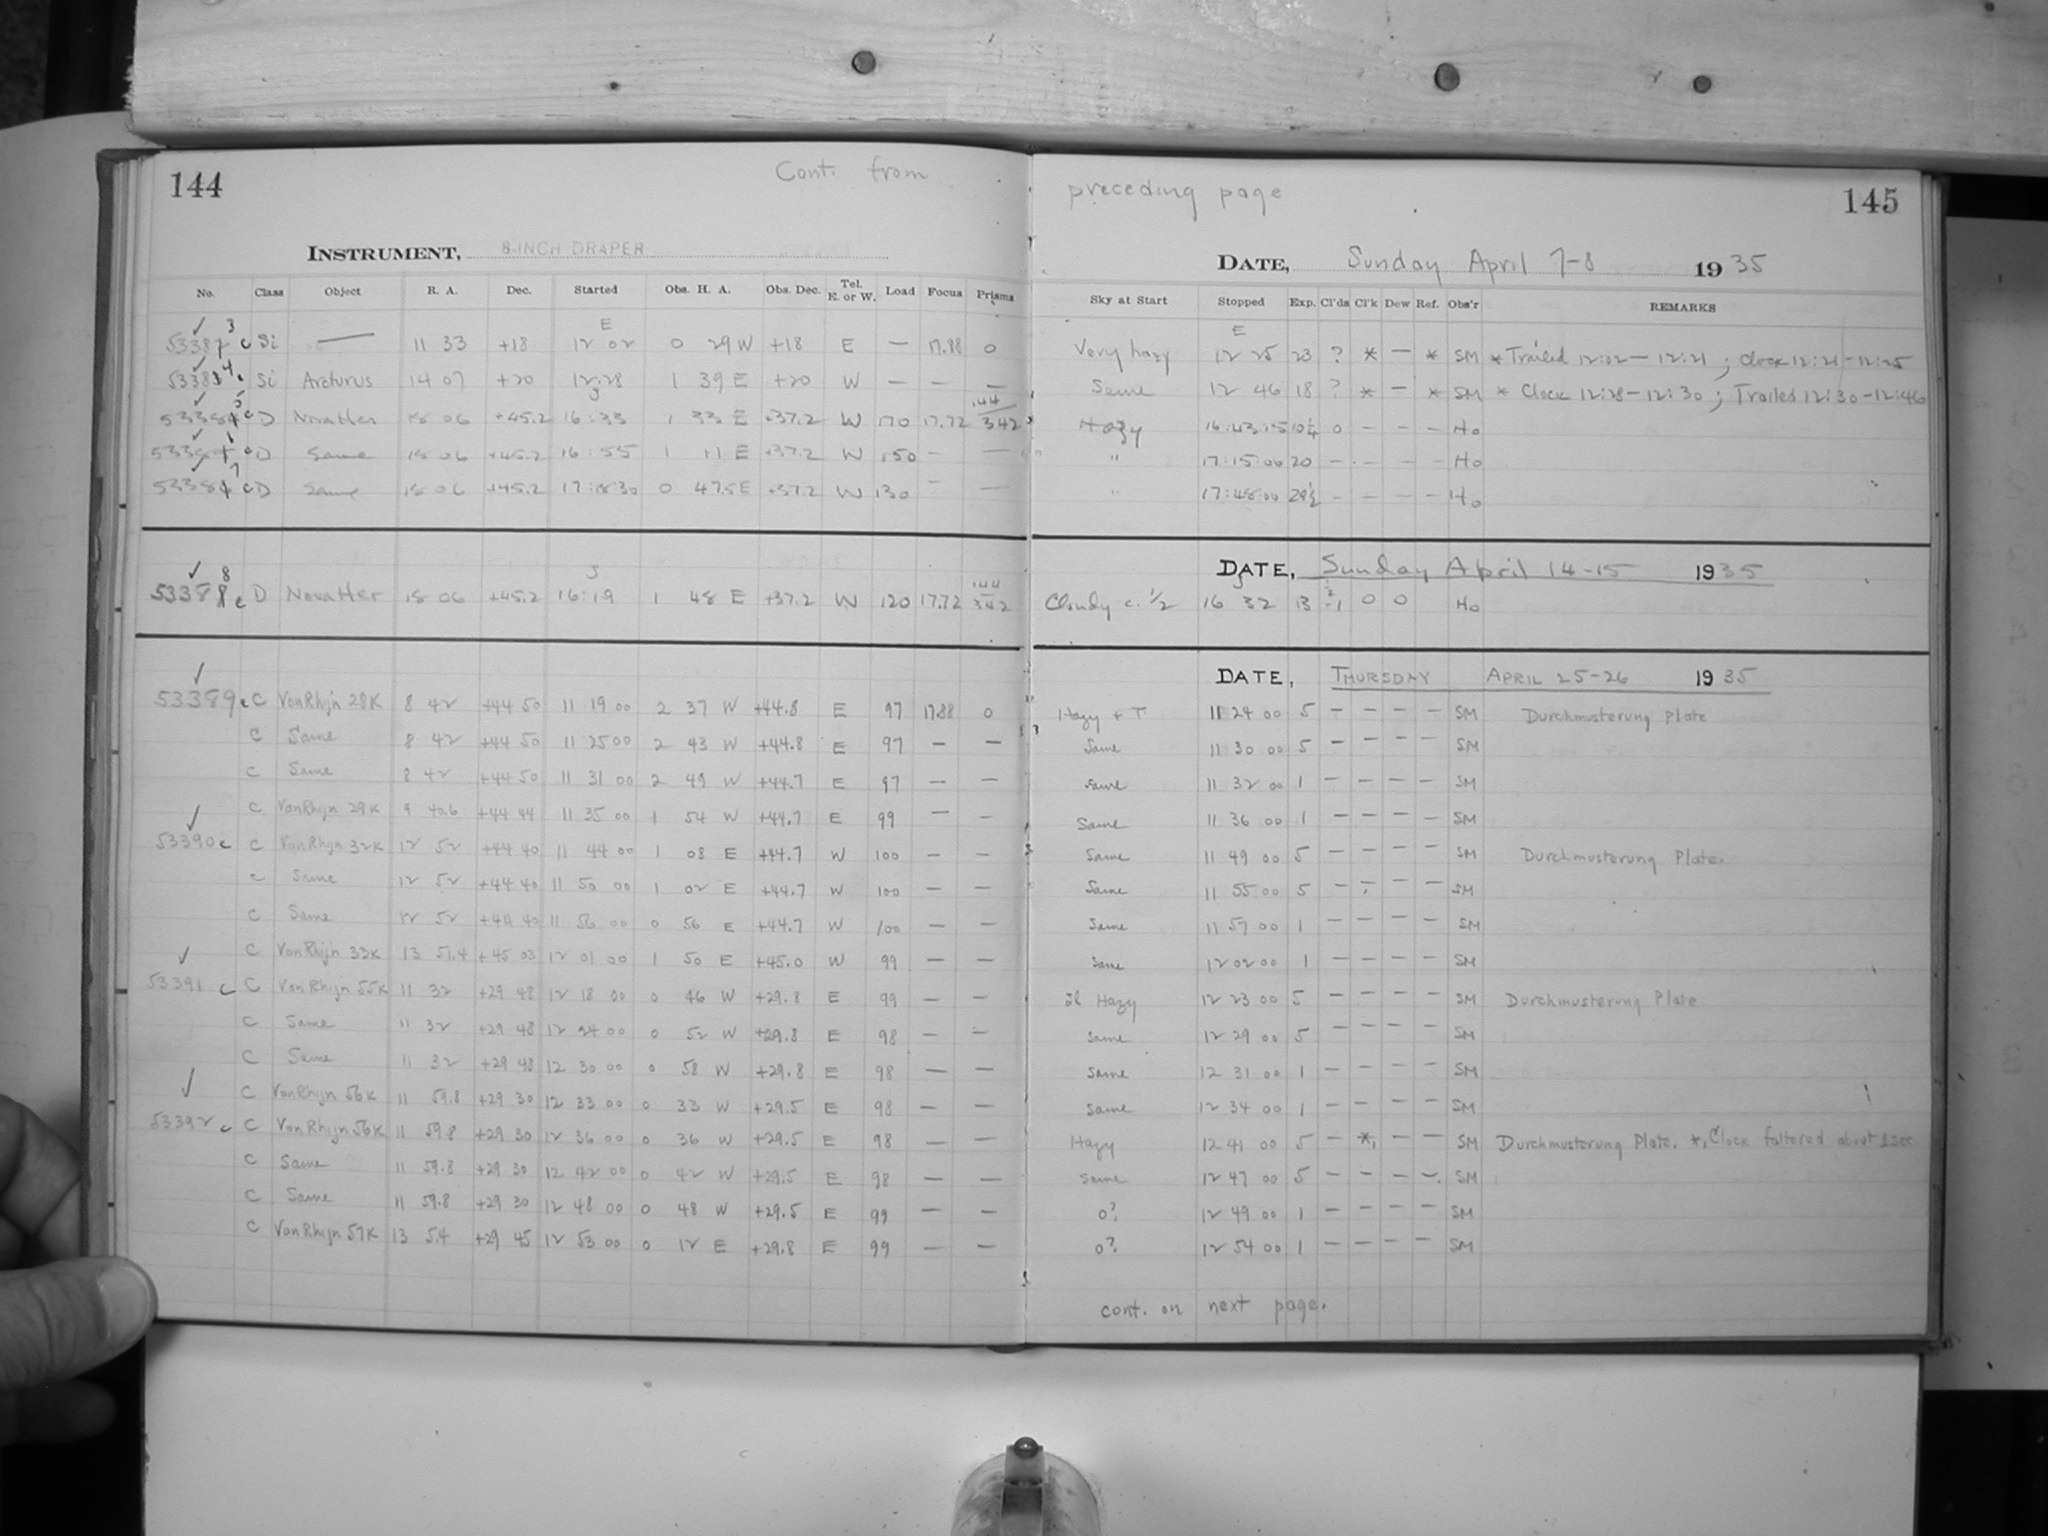 144
Cont. from preceding page
145
INSTRUMENT, 8-INCH DRAPER
DATE, Sunday April 7-8 1935
No. Class Object R. A. Dec. Started Obs. H. A. Obs. Dec. Tel. E. or W. Load Focus Prisms Sky at Start Stopped Exp. Cl'ds Cl'k Dew Ref. Obs'r REMARKS
✓ 3 E E
c Si — 11 33 +18 12 02 0 29 W +18 E — 17.88 0 Very hazy 12 25 23 ? * — * SM * Trailed 12:02 — 12:21 ; Clock 12:21-12:25
✓ 4 c Si Arcturus 14 07 +20 12:28 1 39 E +20 W — — — Same 12 46 18 ? * — * SM * Clock 12:28-12:30 ; Trailed 12:30-12:46
✓ 5 c D Nova Her 18 06 +45.2 16:33 1 33 E +37.2 W 170 17.72 .44/342 Hazy 16:43:15 10¼ 0 — — — Ho
✓ c D Same 18 06 +45.2 16:55 1 11 E +37.2 W 150 — — " 17:15:00 20 — — — — Ho
✓ 7 c D Same 18 06 +45.2 17:18:30 0 47.5 E +37.2 W 130 — — " 17:48:00 29½ — — — — Ho
DATE, Sunday April 14-15 1935
✓ 8 c D Nova Her 18 06 +45.2 16:19 1 48 E +37.2 W 120 17.72 .44/342 Cloudy c. 1/2 16 32 13 0 0 Ho
DATE, THURSDAY APRIL 25-26 1935
✓ 53389 c C Van Rhijn 28K 8 42 +44 50 11 19 00 2 37 W +44.8 E 97 17.88 0 Hazy + T 11 24 00 5 — — — — SM Durchmusterung Plate
C Same 8 42 +44 50 11 25 00 2 43 W +44.8 E 97 — — Same 11 30 00 5 — — — — SM
C Same 8 42 +44 50 11 31 00 2 49 W +44.7 E 97 — — Same 11 32 00 1 — — — — SM
C Van Rhijn 29K 9 40.6 +44 44 11 35 00 1 54 W +44.7 E 99 — — Same 11 36 00 1 — — — — SM
✓ 53390 c C Van Rhijn 32K 12 52 +44 40 11 44 00 1 08 E +44.7 W 100 — — Same 11 49 00 5 — — — — SM Durchmusterung Plate.
C Same 12 52 +44 40 11 50 00 1 02 E +44.7 W 100 — — Same 11 55 00 5 — — — — SM
C Same 12 52 +44 40 11 56 00 0 56 E +44.7 W 100 — — Same 11 57 00 1 — — — — SM
C Van Rhijn 33K 13 51.4 +45 03 12 01 00 1 50 E +45.0 W 99 — — Same 12 02 00 1 — — — — SM
✓ 53391 c C Van Rhijn 55K 11 32 +29 48 12 18 00 0 46 W +29.8 E 99 — — Sl Hazy 12 23 00 5 — — — — SM Durchmusterung Plate
C Same 11 32 +29 48 12 24 00 0 52 W +29.8 E 98 — — Same 12 29 00 5 — — — — SM
C Same 11 32 +29 48 12 30 00 0 58 W +29.8 E 98 — — Same 12 31 00 1 — — — — SM
C Van Rhijn 56K 11 59.8 +29 30 12 33 00 0 33 W +29.5 E 98 — — Same 12 34 00 1 — — — — SM
✓ 53392 c C Van Rhijn 56K 11 59.8 +29 30 12 36 00 0 36 W +29.5 E 98 — — Hazy 12 41 00 5 — *, — — SM Durchmusterung Plate. *, Clock faltered about 1 sec
C Same 11 59.8 +29 30 12 42 00 0 42 W +29.5 E 98 — — Same 12 47 00 5 — — — — SM
C Same 11 59.8 +29 30 12 48 00 0 48 W +29.5 E 99 — — 0? 12 49 00 1 — — — — SM
C Van Rhijn 57K 13 5.4 +29 45 12 53 00 0 12 E +29.8 E 99 — — 0? 12 54 00 1 — — — — SM
cont. on next page.